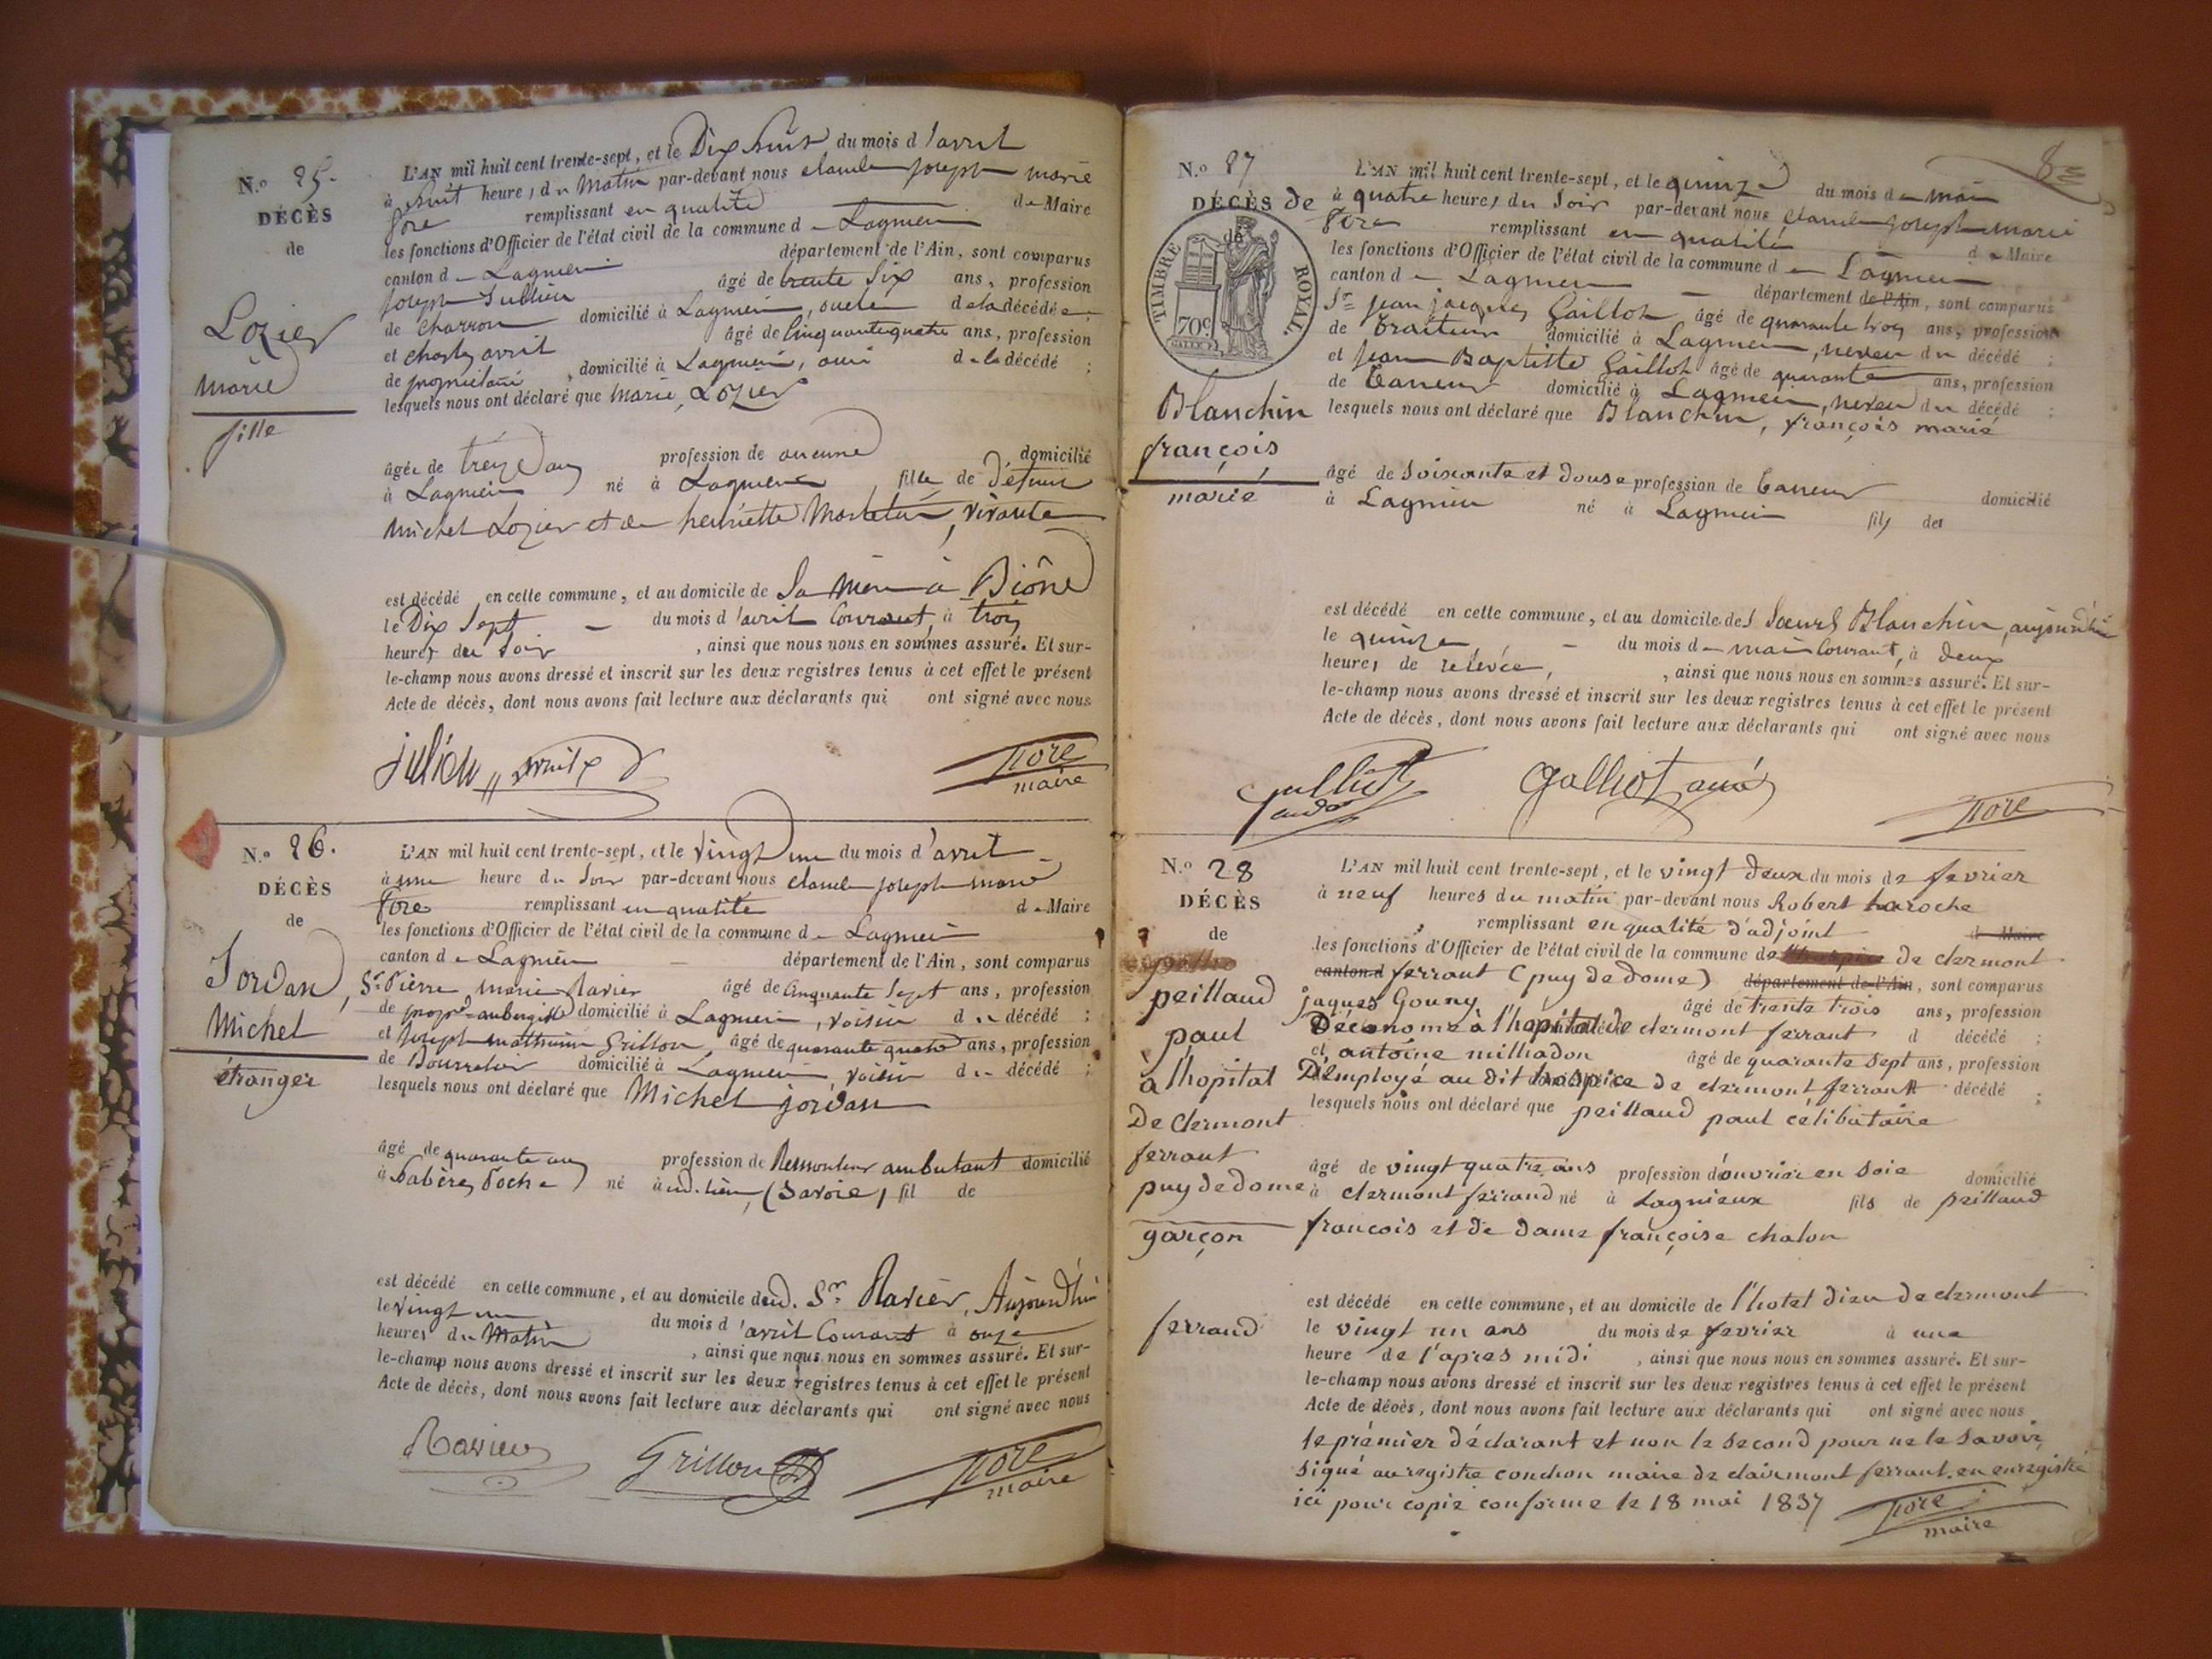 N.º 25.
DÉCÈS
de
Lozier
marie
fille
L'AN mil huit cent trente-sept, et le Dix huit du mois d'avril
à huit heures du Matin par-devant nous claude joseph marie
fore remplissant en qualité de Maire
les fonctions d'Officier de l'état civil de la commune de Lagnieu
canton de Lagnieu département de l'Ain, sont comparus
joseph Jullien âgé de trente six ans, profession
de Charron domicilié à Lagnieu, oncle de la décédée;
et charles avril âgé de Cinquante quatre ans, profession
de propriétaire, domicilié à Lagnieu, ami de la décédé;
lesquels nous ont déclaré que Marie Lozier
âgée de treize ans profession de aucune domicilié
à Lagnieu né à Lagnieu fille de Défunt
Michel Lozier et de henriette, vivante
est décédé en cette commune, et au domicile de Sa Mère à Biône
le Dix Sept du mois d'avril Courant, à trois
heures du Soir, ainsi que nous nous en sommes assuré. Et sur-
le-champ nous avons dressé et inscrit sur les deux registres tenus à cet effet le présent
Acte de décès, dont nous avons fait lecture aux déclarants qui ont signé avec nous
Julien avril fore
maire
N.º 26.
DÉCÈS
de
Jordan
Michel
étranger
L'AN mil huit cent trente-sept, et le Vingt un du mois d'avril
à une heure du Soir par-devant nous claude joseph marie
fore remplissant en qualité de Maire
les fonctions d'Officier de l'état civil de la commune de Lagnieu
canton de Lagnieu département de l'Ain, sont comparus
Sr. Pierre marie Ravier âgé de Cinquante Sept ans, profession
de propre aubergte domicilié à Lagnieu, voisin du décédé;
et Joseph mathurin Grillon âgé de quarante quatre ans, profession
de Bourrelier domicilié à Lagnieu, voisin du décédé;
lesquels nous ont déclaré que Michel jordan
âgé de quarante ans profession de Remouleur ambulant domicilié
à habère Poche né à ud. lieu, (Savoie) fil de
est décédé en cette commune, et au domicile dud. Sr. Ravier, Aujourd'hui
le Vingt un du mois d'avril Courant à onze
heures du Matin, ainsi que nous nous en sommes assuré. Et sur-
le-champ nous avons dressé et inscrit sur les deux registres tenus à cet effet le présent
Acte de décès, dont nous avons fait lecture aux déclarants qui ont signé avec nous
Ravier Grillon fore
maire
8
N.º 27
DÉCÈS de
de
TIMBRE ROYAL.
70c
Blanchin
françois
marié
L'AN mil huit cent trente-sept, et le quinze du mois de mai
à quatre heures du Soir par-devant nous claude joseph marie
fore remplissant en qualité de Maire
les fonctions d'Officier de l'état civil de la commune de Lagnieu
canton de Lagnieu département de l'Ain, sont comparus
Sr. jean jacques Gaillot âgé de quarante trois ans, profession
de traiteur domicilié à Lagnieu, neveu du décédé;
et jean Baptiste Gaillot âgé de quarante ans, profession
de tanneur domicilié à Lagnieu, neveu du décédé;
lesquels nous ont déclaré que Blanchin, françois marié
âgé de soixante et douse profession de tanneur domicilié
à Lagnieu né à Lagnieu fils des
est décédé en cette commune, et au domicile des Soeurs Blanchin, aujourd'hui
le quinze du mois de mai Courant, à deux
heures de relevée, ainsi que nous nous en sommes assuré. Et sur-
le-champ nous avons dressé et inscrit sur les deux registres tenus à cet effet le présent
Acte de décès, dont nous avons fait lecture aux déclarants qui ont signé avec nous
Galliot cadet Galliot ainé fore
N.º 28
DÉCÈS
de
peillaud
paul
à l'hopital
De Clermont
ferrant
puy de dome
garçon
ferrand
L'AN mil huit cent trente-sept, et le vingt deux du mois de fevrier
à neuf heures du matin par-devant nous Robert Laroche
remplissant en qualité d'adjoint de Maire
les fonctions d'Officier de l'état civil de la commune de de clermont
canton d ferrant (puy de dome) département de l'Ain, sont comparus
jaques Gouny âgé de trente trois ans, profession
D'économe à l'hopital de clermont ferrant d décédé;
et antoine milhadon âgé de quarante sept ans, profession
D'employé au dit hospice de clermont ferrant décédé;
lesquels nous ont déclaré que peillaud paul célibataire
âgé de vingt quatre ans profession d'ouvrier en soie domicilié
à clermont ferrand né à Lagnieux fils de peillaud
francois et de dame françoise chalon
est décédé en cette commune, et au domicile de l'hotel dieu de clermont
le vingt un ans du mois de fevrier à une
heure de l'apres midi, ainsi que nous nous en sommes assuré. Et sur-
le-champ nous avons dressé et inscrit sur les deux registres tenus à cet effet le présent
Acte de décès, dont nous avons fait lecture aux déclarants qui ont signé avec nous
le prémier déclarant et non le second pour ne le savoir,
signé au registre conchon maire de clairmont ferrant. en enregistré
ici pour copie conforme le 18 mai 1837 fore
maire